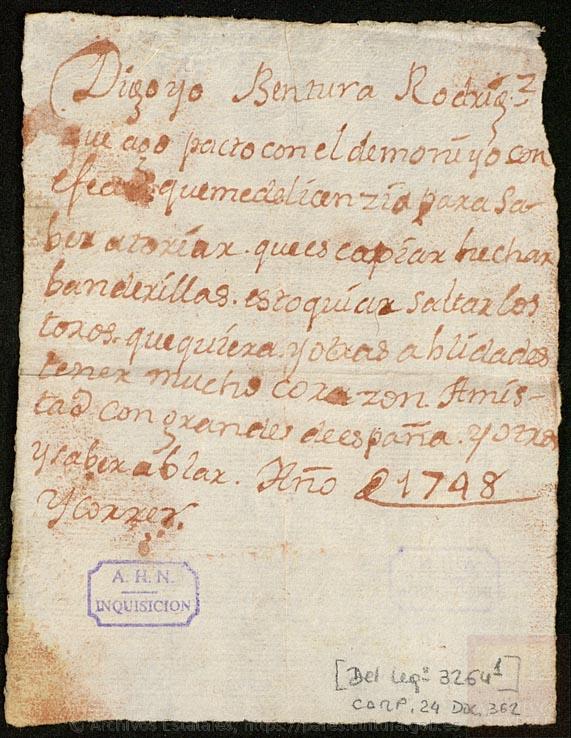 Digo yo Bentura Rodrig.z
que ago pacto con el demoni yo con
efecto quemedelicenzia para sa-
ber atoriar. quees capiar hechar
banderillas. estoquiar saltar los
toros. que quiera. y otras ablidades
tener mucho corazon. Amis-
tad con grandes de españa. y otros
y saber ablar. Año @ 1748
Y correr.
A. H. N.
INQUISICION
[Del leg.º 3264¹]
CARP. 24 Doc. 362
© Archivos Estatales, https://pares.cultura.gob.es